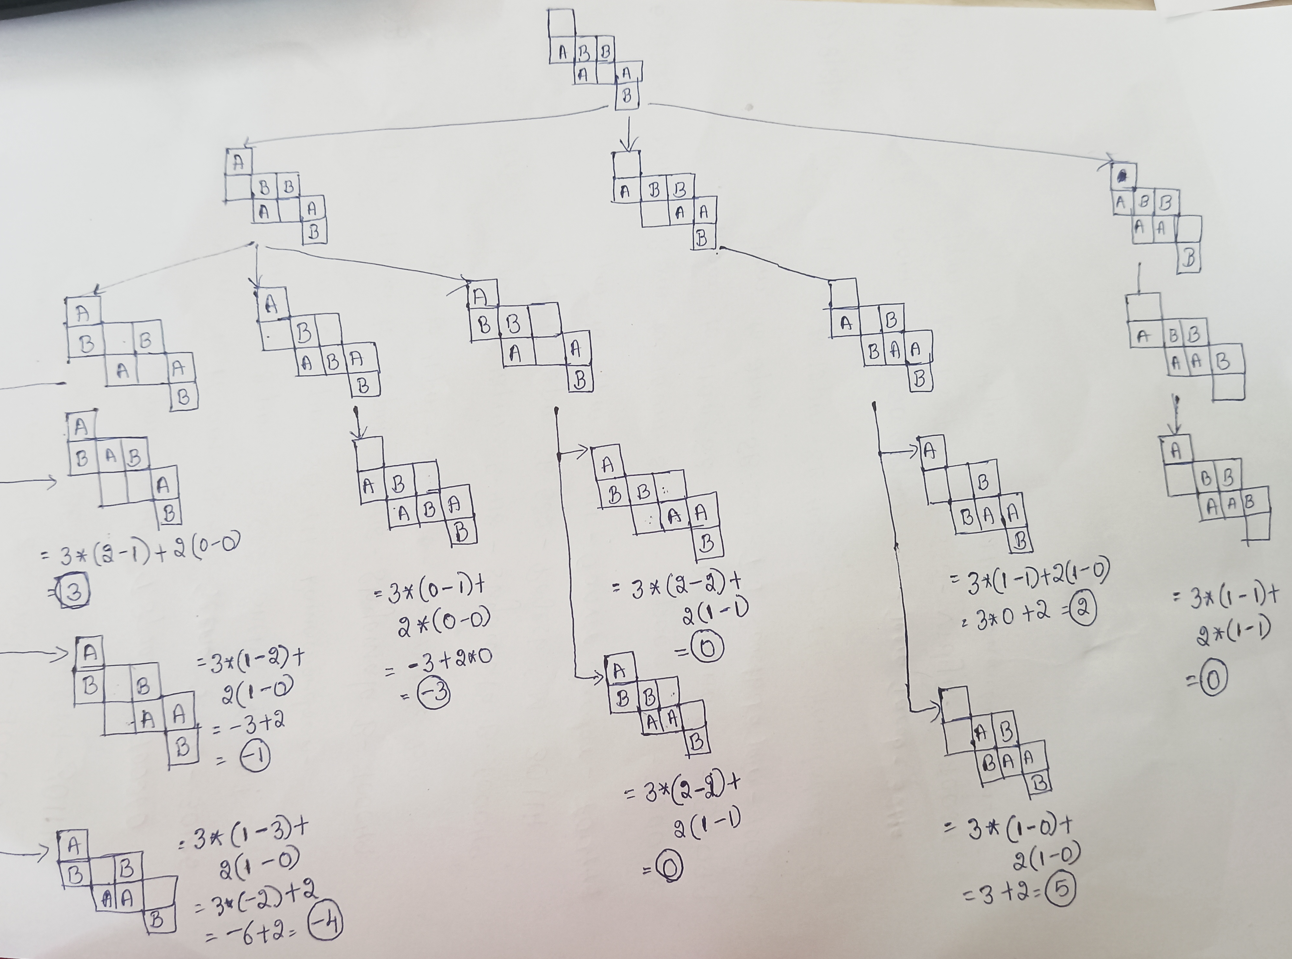 A B B
A A
B
A
B B
A A
B
A B B
A A
B
A B B
A A
B
A
B B
A A
B
A
B
A B A
B
A
B B
A A
B
A B
B A A
B
A B B
A A B
A
B A B
A
B
= 3*(2-1)+2(0-0)
= 3
A B
A B A
B
= 3*(0-1)+
2*(0-0)
= -3+2*0
= -3
A
B B
A A
B
= 3*(2-2)+
2(1-1)
= 0
A
B
B A A
B
= 3*(1-1)+2(1-0)
= 3*0+2 = 2
A
B B
A A B
= 3*(1-1)+
2*(1-1)
= 0
A
B B
A A
B
= 3*(1-2)+
2(1-0)
= -3+2
= -1
A
B B
A A
B
= 3*(2-2)+
2(1-1)
= 0
A B
B A A
B
= 3*(1-0)+
2(1-0)
= 3+2 = 5
A
B B
A A
B
= 3*(1-3)+
2(1-0)
= 3*(-2)+2
= -6+2 = -4